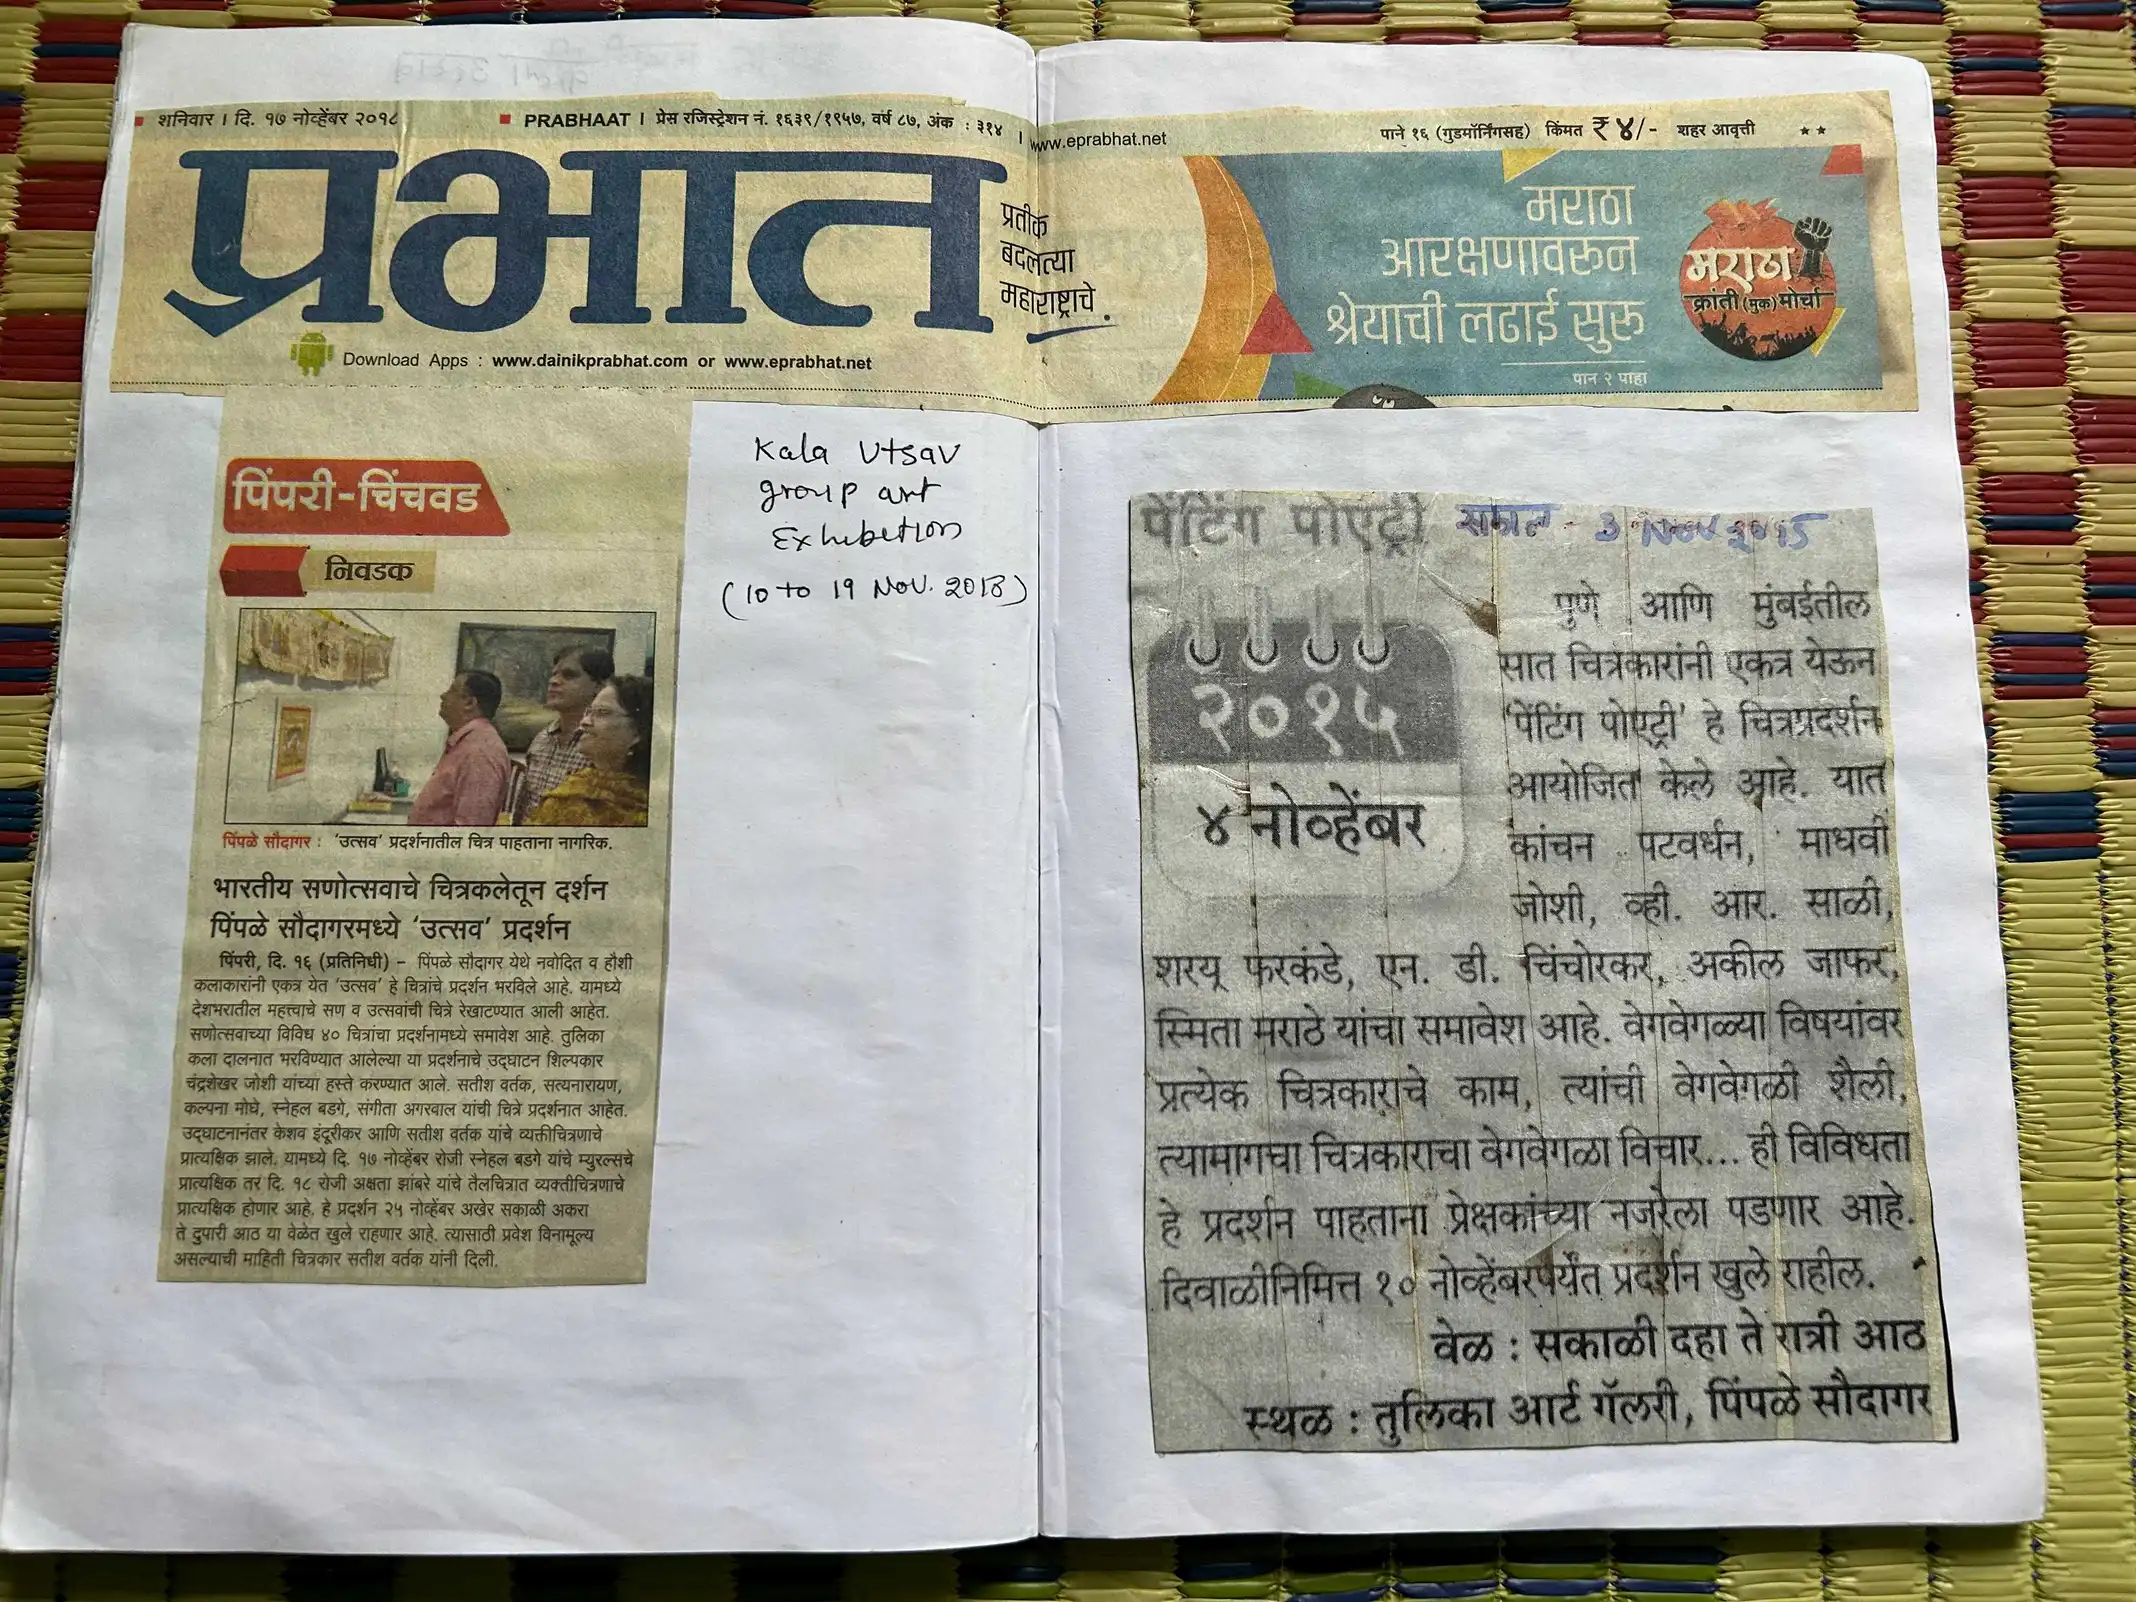 शनिवार । दि. १७ नोव्हेंबर २०१८
PRABHAAT । प्रेस रजिस्ट्रेशन नं. १६३९/१९५७, वर्ष ८७, अंक : ३१४ । www.eprabhat.net
पाने १६ (गुडमॉर्निंगसह) किंमत ₹ ४/- शहर आवृत्ती
प्रभात
प्रतीक
बदलत्या
महाराष्ट्राचे.
Download Apps : www.dainikprabhat.com or www.eprabhat.net
मराठा
आरक्षणावरून
श्रेयाची लढाई सुरू
पान २ पाहा
मराठा
क्रांती (मुक) मोर्चा
पिंपरी-चिंचवड
निवडक
पिंपळे सौदागर : 'उत्सव' प्रदर्शनातील चित्र पाहताना नागरिक.
भारतीय सणोत्सवाचे चित्रकलेतून दर्शन
पिंपळे सौदागरमध्ये 'उत्सव' प्रदर्शन
पिंपरी, दि. १६ (प्रतिनिधी) – पिंपळे सौदागर येथे नवोदित व हौशी
कलाकारांनी एकत्र येत 'उत्सव' हे चित्रांचे प्रदर्शन भरविले आहे. यामध्ये
देशभरातील महत्त्वाचे सण व उत्सवांची चित्रे रेखाटण्यात आली आहेत.
सणोत्सवाच्या विविध ४० चित्रांचा प्रदर्शनामध्ये समावेश आहे. तुलिका
कला दालनात भरविण्यात आलेल्या या प्रदर्शनाचे उद्घाटन शिल्पकार
चंद्रशेखर जोशी यांच्या हस्ते करण्यात आले. सतीश वर्तक, सत्यनारायण,
कल्पना मोघे, स्नेहल बडगे, संगीता अगरवाल यांची चित्रे प्रदर्शनात आहेत.
उद्घाटनानंतर केशव इंदूरीकर आणि सतीश वर्तक यांचे व्यक्तीचित्रणाचे
प्रात्यक्षिक झाले. यामध्ये दि. १७ नोव्हेंबर रोजी स्नेहल बडगे यांचे म्युरल्सचे
प्रात्यक्षिक तर दि. १८ रोजी अक्षता झांबरे यांचे तैलचित्रात व्यक्तीचित्रणाचे
प्रात्यक्षिक होणार आहे. हे प्रदर्शन २५ नोव्हेंबर अखेर सकाळी अकरा
ते दुपारी आठ या वेळेत खुले राहणार आहे. त्यासाठी प्रवेश विनामूल्य
असल्याची माहिती चित्रकार सतीश वर्तक यांनी दिली.
Kala Utsav
group art
Exhibetion
(10 to 19 Nov. 2018)
पेंटिंग पोएट्री सकाळ - 3 Nov 2015
२०१५
४ नोव्हेंबर
पुणे आणि मुंबईतील
सात चित्रकारांनी एकत्र येऊन
'पेंटिंग पोएट्री' हे चित्रप्रदर्शन
आयोजित केले आहे. यात
कांचन पटवर्धन, माधवी
जोशी, व्ही. आर. साळी,
शरयू फरकंडे, एन. डी. चिंचोरकर, अकील जाफर,
स्मिता मराठे यांचा समावेश आहे. वेगवेगळ्या विषयांवर
प्रत्येक चित्रकाराचे काम, त्यांची वेगवेगळी शैली,
त्यामागचा चित्रकाराचा वेगवेगळा विचार... ही विविधता
हे प्रदर्शन पाहताना प्रेक्षकांच्या नजरेला पडणार आहे.
दिवाळीनिमित्त १० नोव्हेंबरपर्यंत प्रदर्शन खुले राहील.
वेळ : सकाळी दहा ते रात्री आठ
स्थळ : तुलिका आर्ट गॅलरी, पिंपळे सौदागर